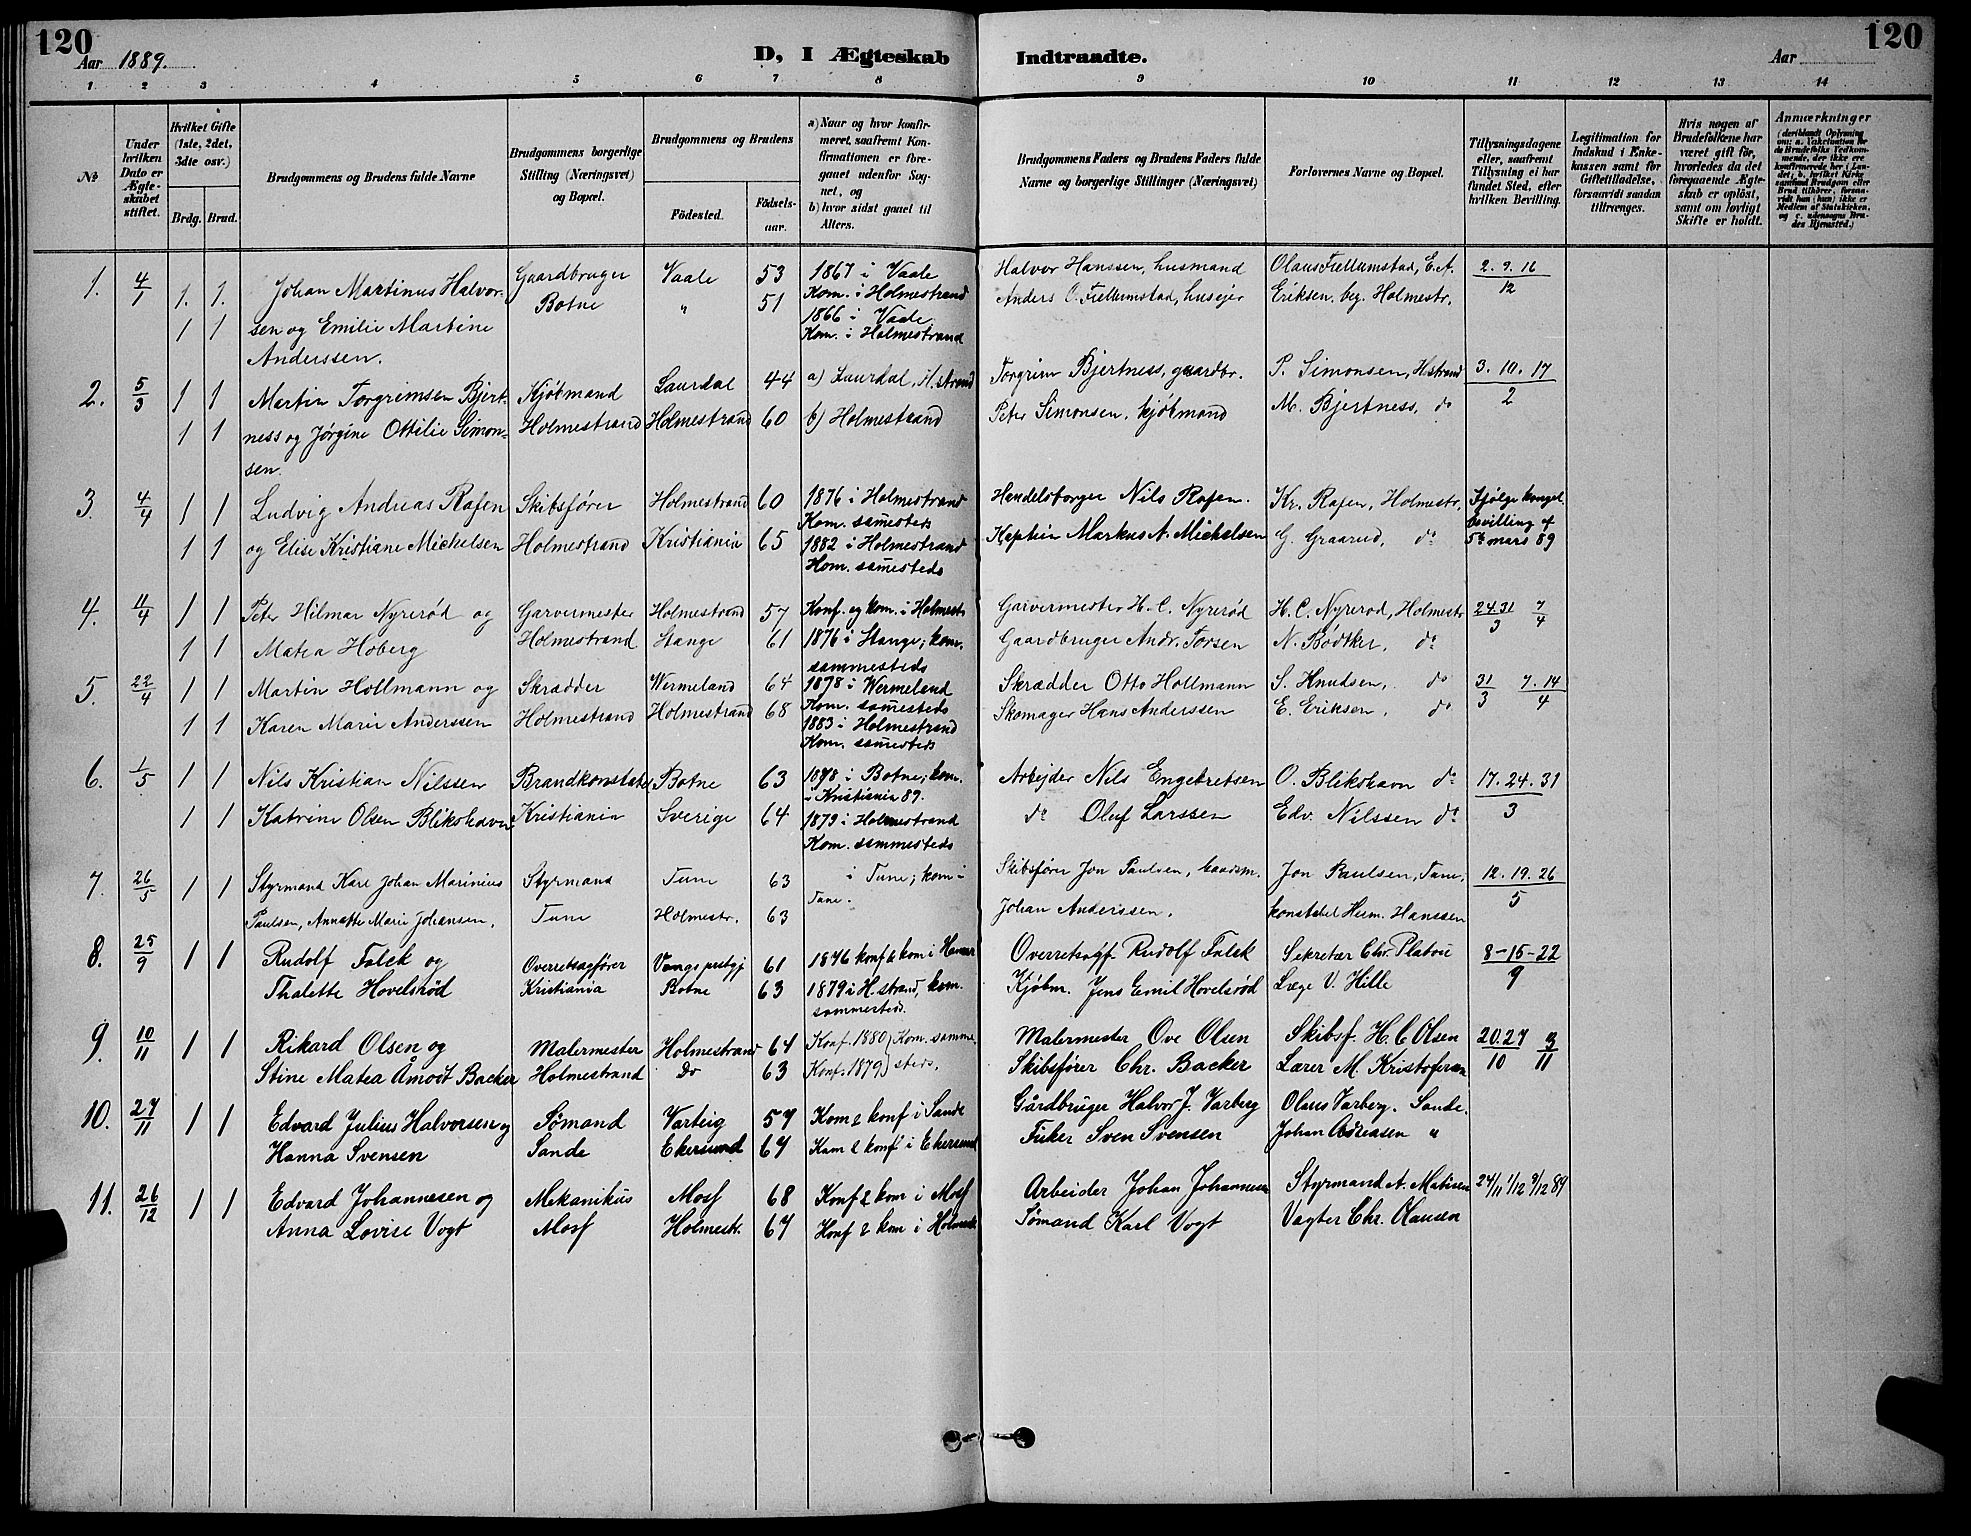 120
Aar 1889.
D, I Ægteskab Indtraadte.
Aar
120
1 2 3 4 5 6 7 8 9 10 11 12 13 14
No
Under hvilken Dato er Ægteskabet stiftet.
Hvilket Gifte (1ste, 2det, 3die osv.)
Brdg. Brud.
Brudgommens og Brudens fulde Navne
Brudgommens borgerlige Stilling (Næringsvei) og Bopæl.
Brudgommens og Brudens
Födested. Födselsaar.
a) Naar og hvor konfirmeret, saafremt Konfirmationen er foregaaet udenfor Sognet, og
b) hvor sidst gaaet til Alters.
Brudgommens Faders og Brudens Faders fulde Navne og borgerlige Stillinger (Næringsvei)
Forlovernes Navne og Bopæl.
Tillysningsdagene eller, saafremt Tillysning ei har fundet Sted, efter hvilken Bevilling.
Legitimation for Indskud i Enkekassen samt for Giftetilladelse, forsaavidt saadan tiltrænges.
Hvis nogen af Brudefolkene har været gift før, hvorledes da det foregaaende Ægteskab er opløst, samt om lovligt Skifte er holdt.
Anmærkninger
(deriblandt Oplysning om: a. Vakcination for de Brudefolks Vedkommende, der ikke ere konfirmerede her i Landet; b. hvilket Kirkesamfund Brudgom eller Brud tilhører, forsaavidt han (hun) ikke er Medlem af Statskirken, og c. udensogns Brudes Hjemsted.)
1. 4/1 1. 1. Johan Martinus Halvor- Gaardbruger Vaale 53 1867 i Vaale Halvor Hanssen, husmand Olaus Fiellumstad, E. A. 2. 9. 16
1 1 sen og Emilie Martine Botne " 51 Kom. i Holmestrand Anders O. Fiellumstad, husejer Eriksen, beg. Holmestr. 12
Anderssen. 1866 i Vaale
Kom. i Holmestrand
2. 5/3 1 1 Martin Torgrimsen Bjert- Kjøbmand Laurdal 44 a) Laurdal, H.strand Torgrim Bjertness, gaardbr. P. Simonsen, H.strand 3. 10. 17
1 1 ness og Jørgine Ottilie Simon- Holmestrand Holmestrand 60 b) Holmestrand Peter Simonsen, kjøbmand M. Bjertness, do 2
sen.
3. 4/4 1 1 Ludvig Andreas Rafen Skibsfører Holmestrand 60 1876 i Holmestrand Handelsborger Nils Rafen. Kr. Rafen, Holmestr. Ifølge kongel.
Kom. samesteds bevilling af
1 1 og Elise Kristiane Michelsen Holmestrand Kristiania 65 1882 i Holmestrand Kaptein Markus A. Michelsen G. Graarud, do 5te mars 89
Kom. samesteds
4. 11/4 1 1 Peter Hilmar Nyrerød og Garvermester Holmestrand 57 Konf. og kom. i Holmestr. Garvermester H. C. Nyrerød H. C. Nyrerød, Holmestr. 24.31/3 7/4
1 1 Matea Hoberg Holmestrand Stange 61 1876 i Stange; kom. Gaardbruger Andr. Torsen N. Bödtker, do
sammesteds
5. 22/4 1 1 Martin Hollmann og Skrædder Wermeland 64 1878 i Wermeland Skrædder Otto Hollmann S. Knudsen, do 31/3 7. 14/4
Kom. samesteds
1 1 Karen Marie Anderssen Holmestrand Holmestrand 68 1883 i Holmestrand Skomager Hans Anderssen E. Eriksen, do
Kom. samesteds
6. 1/5 1 1 Nils Kristian Nilssen Brandkonstabel Botne 63 1878 i Botne; kom. Arbejder Nils Engebretsen O. Blikshavn do 17. 24. 31
i Kristiania 89.
1 1 Katrine Olsen Blikshavn Kristiania Sverige 64 1879 i Holmestrand do Oluf Larssen Edv. Nilssen do 3
Kom. sammesteds
7. 26/5 1 1 Styrmand Karl Johan Marinius Styrmand Tune 63 i Tune; kom i Skibsfører Jon Paulsen, Jon Paulsen, Tune, 12. 19. 26
Paulsen, Annette Marie Johansen. Tune Holmestr. 63 Tune. Johan Anderssen. konstabel Hanssen 5
8. 25/9 1 1 Rudolf Falck og Overretssagfører Vangs prstgj 61 1876 konf & kom i Hamar Rudolf Falck Sekretær Chr. Platou 8-15-22
Thalette Hovelsrød Kristiania Botne 63 1879 i H.strand, kom. Kjøbm. Jens Emil Hovelsrød Læge V. Hille 9
sammesteds.
9. 10/11 1 1 Rikard Olsen og Malermester Holmestrand 64 Konf. 1880 } Kom. samme- Malermester Ove Olsen Skibsf. H. C Olsen 20.27/10 3/11
Stine Matea Åmodt Backer Holmestrand Do 63 Konf. 1879 } steds. Skibsfører Chr. Backer Lærer M. Kristofersen
10. 27/11 1 1 Edvard Julius Halvorsen og Sømand Varteig 57 Kom & konf i Sande Gårdbruger Halvor J. Varberg Olaus Varberg. Sande.
Hanna Svensen Sande Ekersund 67 Kom & konf i Ekersund Fisker Sven Svensen Johan Andreasen "
11. 26/12 1 1 Edvard Johannesen og Mekanikus Moss 68 Konf & kom i Moss Arbeider Johan Johannesen Styrmand A. Matisen 24/11 1/12 8/12 89
Anna Lovise Vogt Moss Holmestr. 67 Konf & kom i Holmestr Sømand Karl Vogt Vagter Chr. Olausen